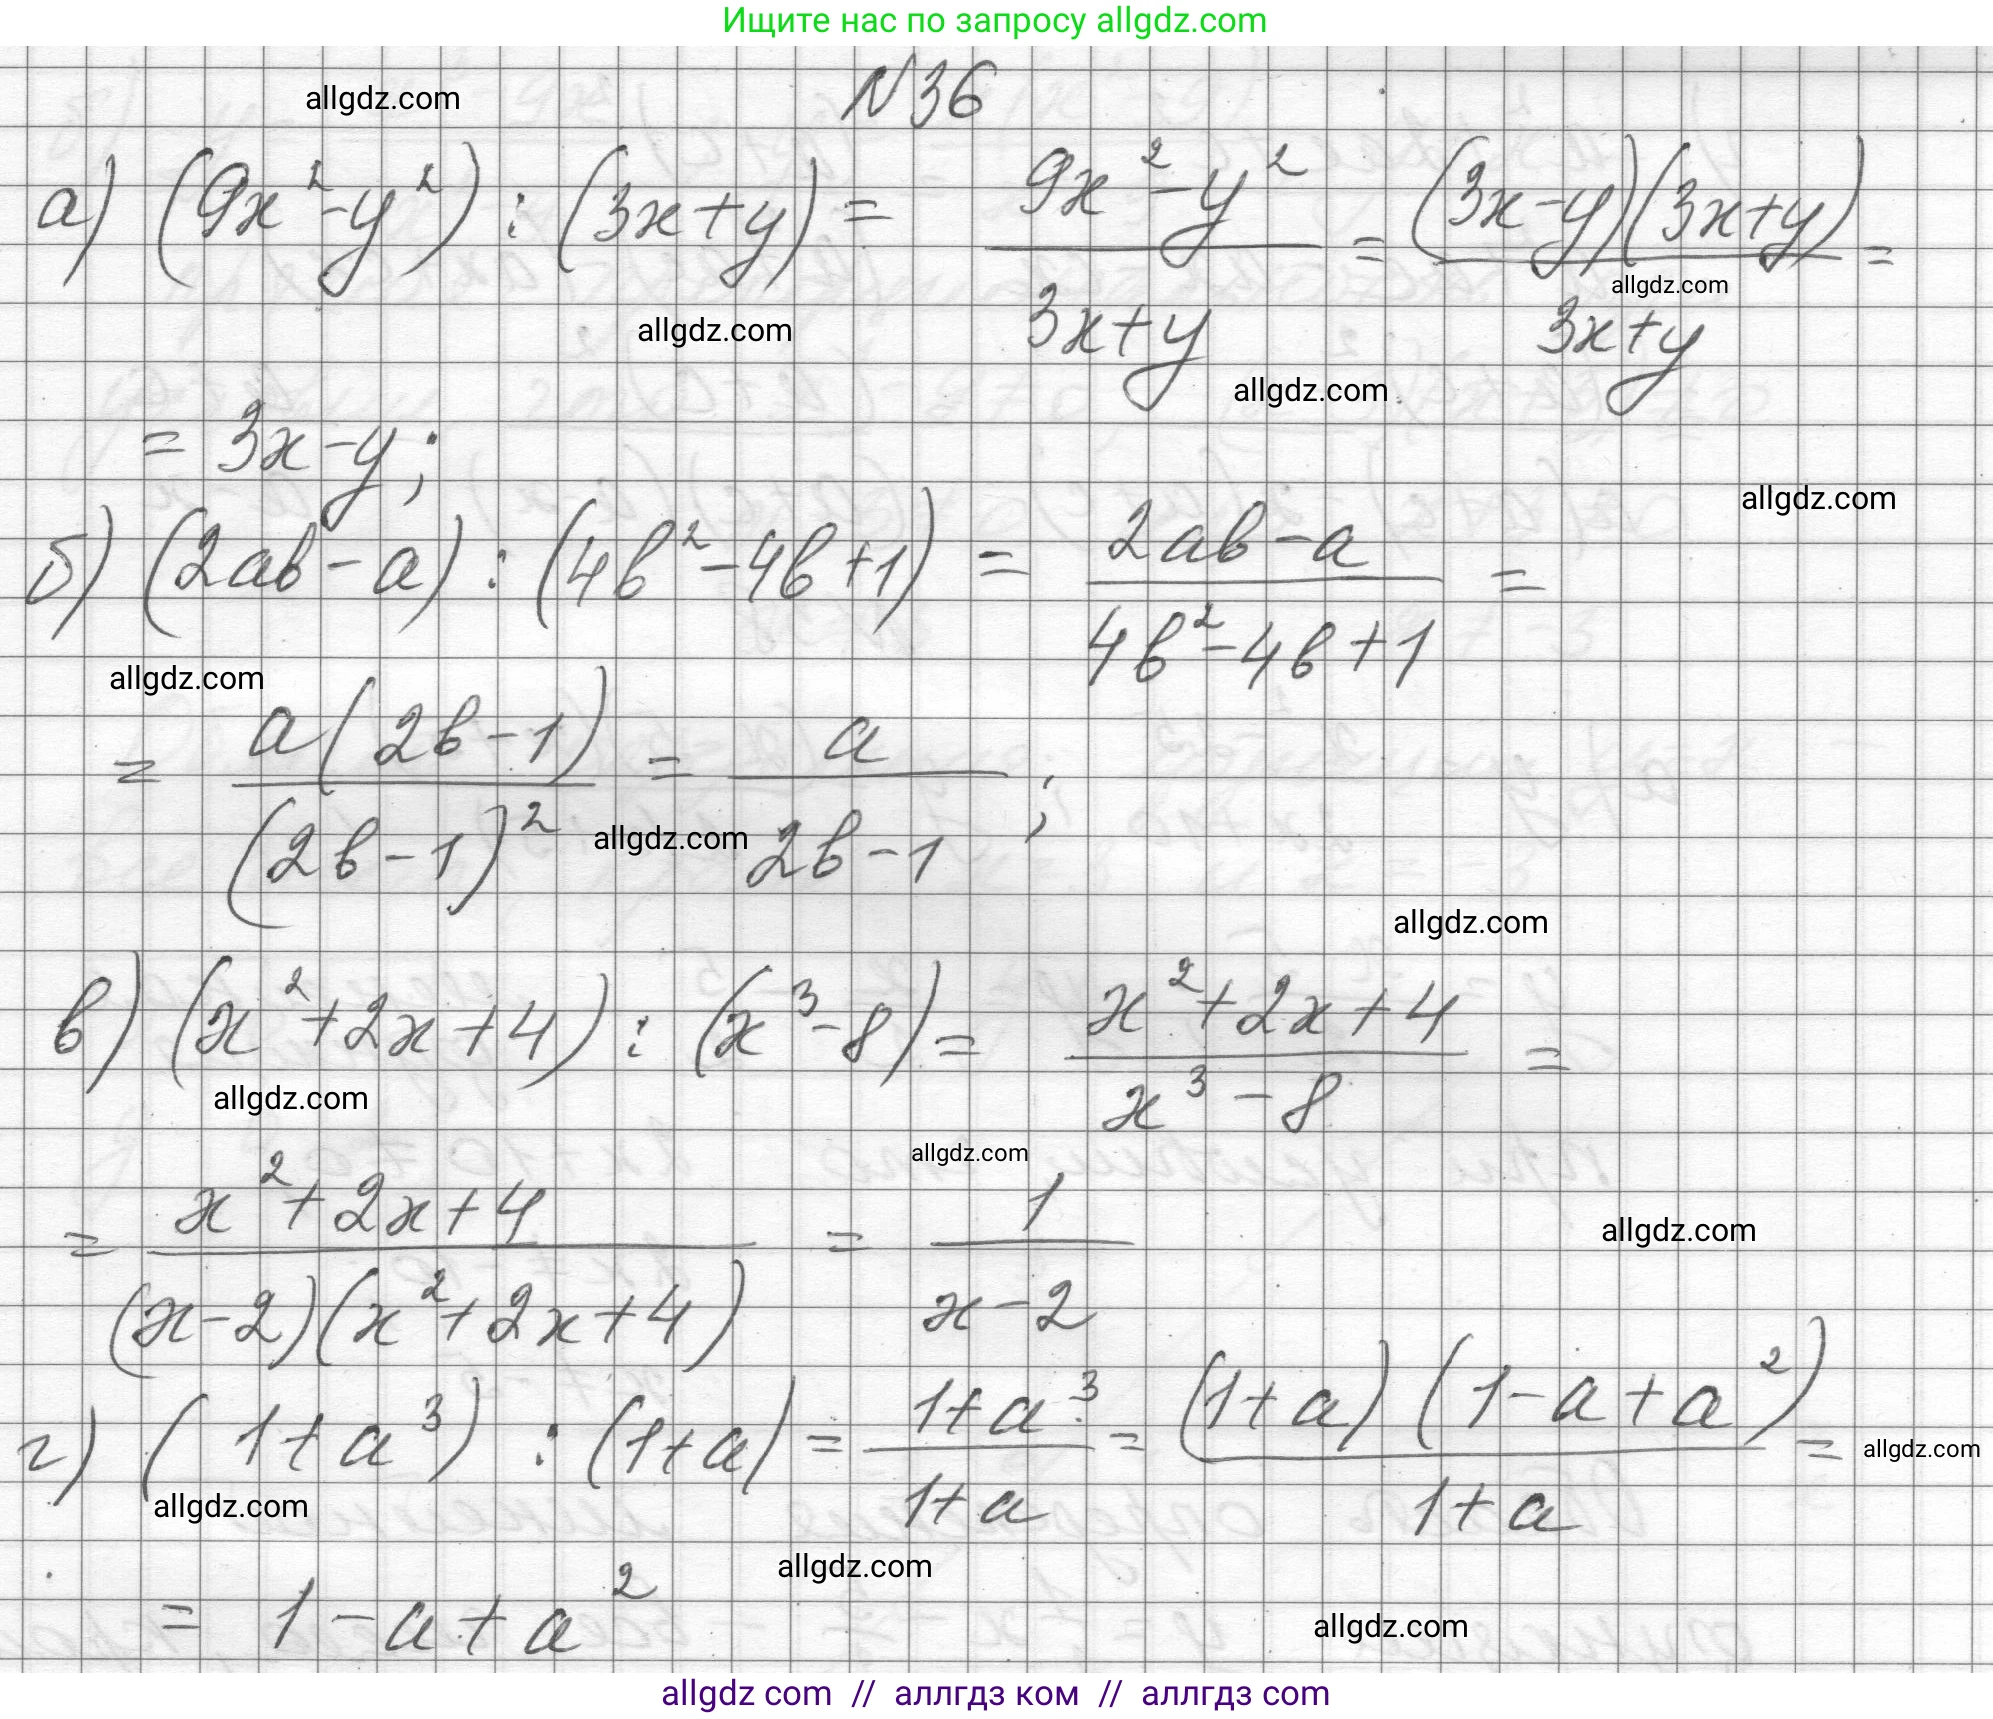 Ищите нас по запросу allgdz.com
N36
allgdz.com
а) (9x²-y²) : (3x+y) = \frac{9x²-y²}{3x+y} = \frac{(3x-y)(3x+y)}{3x+y} =
allgdz.com
allgdz.com
allgdz.com
= 3x-y;
allgdz.com
б) (2ab-a) : (4b²-4b+1) = \frac{2ab-a}{4b²-4b+1} =
allgdz.com
= \frac{a(2b-1)}{(2b-1)²} = \frac{a}{2b-1};
allgdz.com
allgdz.com
в) (x²+2x+4) : (x³-8) = \frac{x²+2x+4}{x³-8} =
allgdz.com
allgdz.com
= \frac{x²+2x+4}{(x-2)(x²+2x+4)} = \frac{1}{x-2}
allgdz.com
г) (1+a³) : (1+a) = \frac{1+a³}{1+a} = \frac{(1+a)(1-a+a²)}{1+a} =
allgdz.com
allgdz.com
allgdz.com
= 1-a+a²
allgdz.com
allgdz com // аллгдз ком // аллгдз com